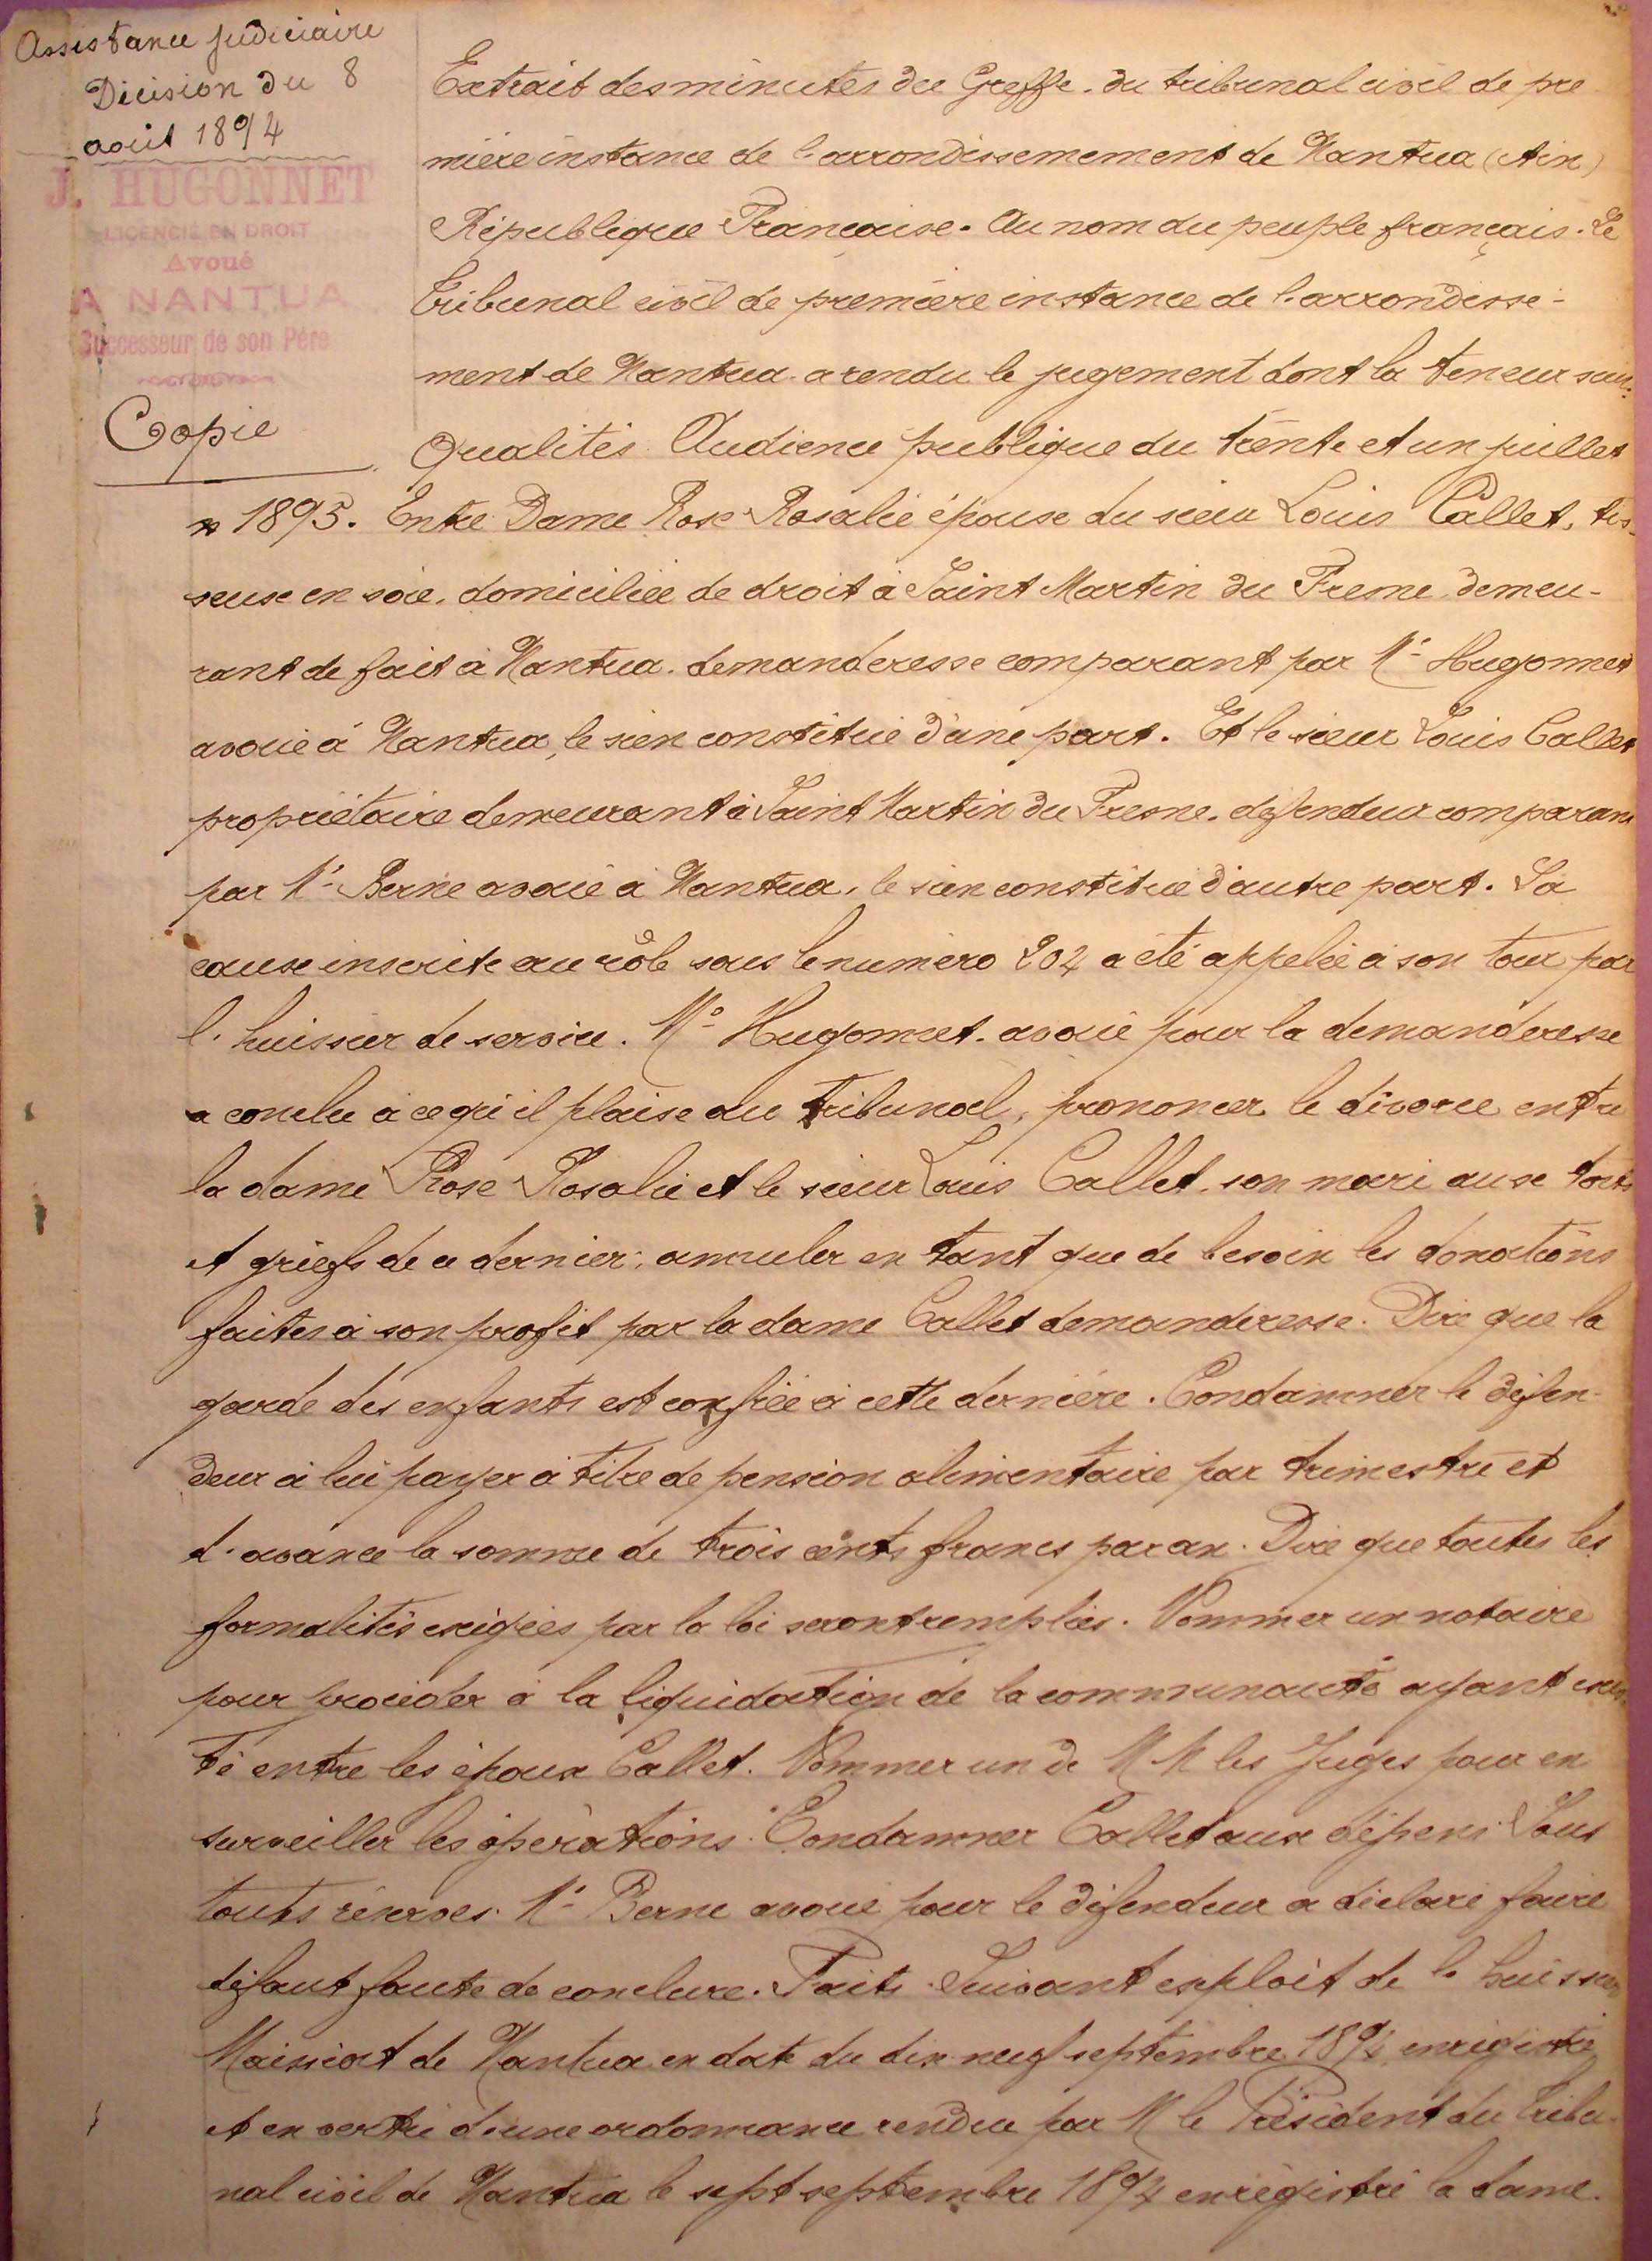 Assistance judiciaire
Décision du 8
août 1894
J. HUGONNET
LICENCIÉ EN DROIT
Avoué
A NANTUA
Successeur de son Père
Copie
Extrait des minutes du Greffe du tribunal civil de pre
mière instance de l'arrondissemement de Nantua (Ain)
République Française. Au nom du peuple français. Le
Tribunal civil de première instance de l'arrondisse-
ment de Nantua a rendu le jugement dont la teneur suit:
Qualités. Audience publique du trente et un juillet
1895. Entre Dame Rose Rosalie épouse du sieur Louis Callet, tis-
seuse en soie, domiciliée de droit à Saint Martin du Fresne demeu-
rant de fait à Nantua. demanderesse comparant par Me Hugonnet
avoué à Nantua, le sien constitué d'une part. Et le sieur Louis Callet
propriétaire demeurant à Saint Martin du Fresne. défendeur comparant
par Me Berne avoué à Nantua, le sien constitué d'autre part. La
cause inscrite au rôle sous le numéro 202 a été appelée à son tour par
l'huissier de service. Me Hugonnet. avoué pour la demanderesse
a conclu à ce qu'il plaise au Tribunal, prononcer le divorce entre
la dame Rose Rosalie et le sieur Louis Callet, son mari aux torts
et griefs de ce dernier; annuler en tant que de besoin les donations
faites à son profit par la dame Callet demanderesse. Dire que la
garde des enfants est confiée à cette dernière. Condamner le défen-
deur à lui payer à titre de pension alimentaire par trimestre et
d'avance la somme de trois cents francs par an. Dire que toutes les
formalités exigées par la loi seront remplies. Nommer un notaire
pour procéder à la liquidation de la communauté ayant exis
té entre les époux Callet. Nommer un de M M les Juges pour en
surveiller les opérations. Condamner Callet aux dépens. Sous
toutes réserves. Me Berne avoué pour le défendeur a déclaré faire
défaut faute de conclure. Faits. Suivant exploit de l'huissier
Maissiat de Nantua en date du dix neuf septembre 1894 enregistré
et en vertu d'une ordonnance rendue par M le Président du Tribu-
nal civil de Nantua le sept septembre 1894 enregistré la dame.